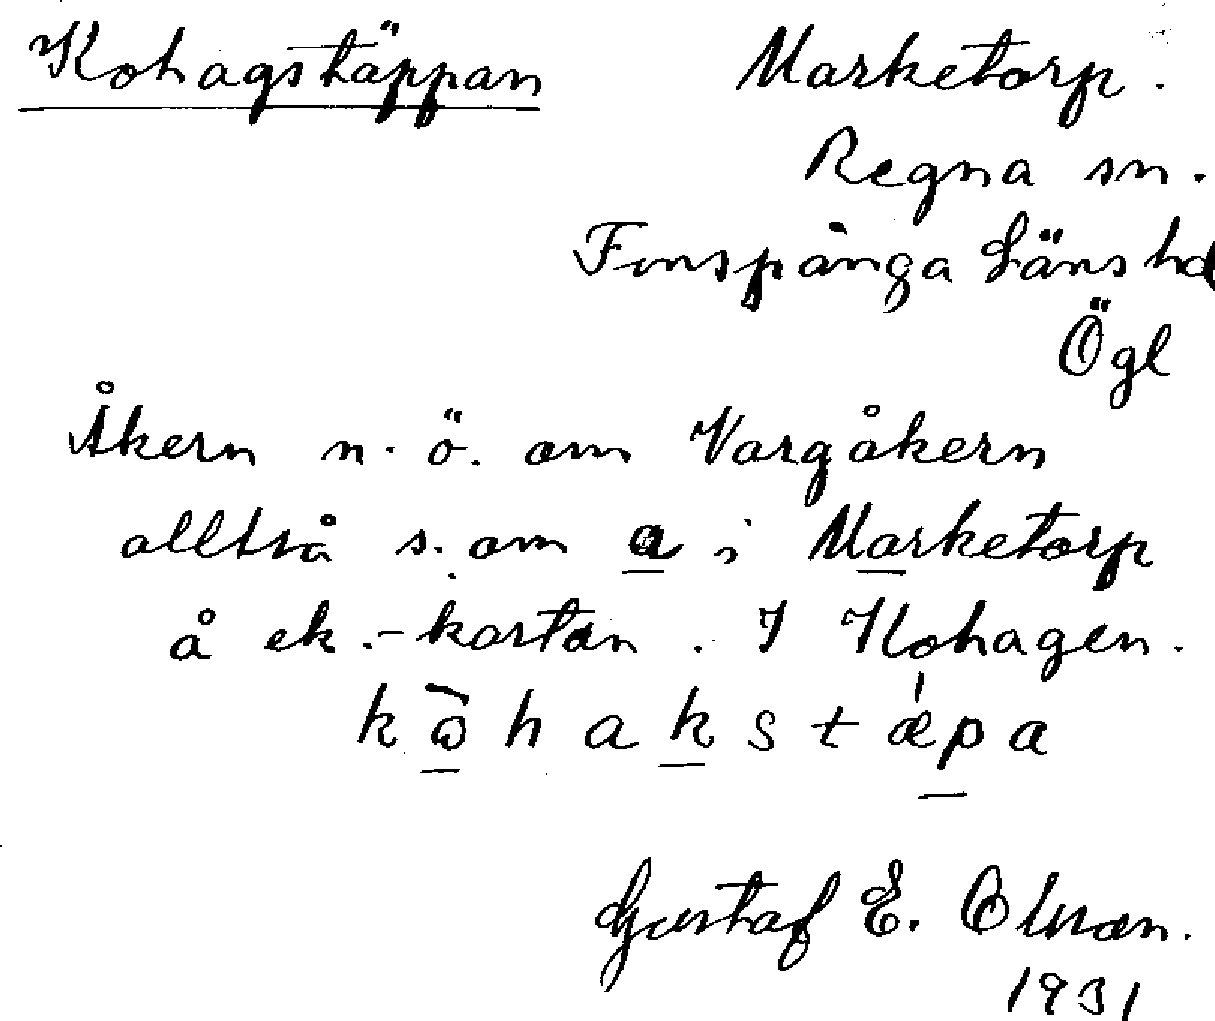 Kohagstäppan
Marketorp.
Regna sn.
Finspånga Läns hd
Ögl
Åkern n.ö. om Vargåkern
alltså s. om a i Marketorp
å ek.-kartan. I Kohagen.
Gustaf E. Olsson.
1931